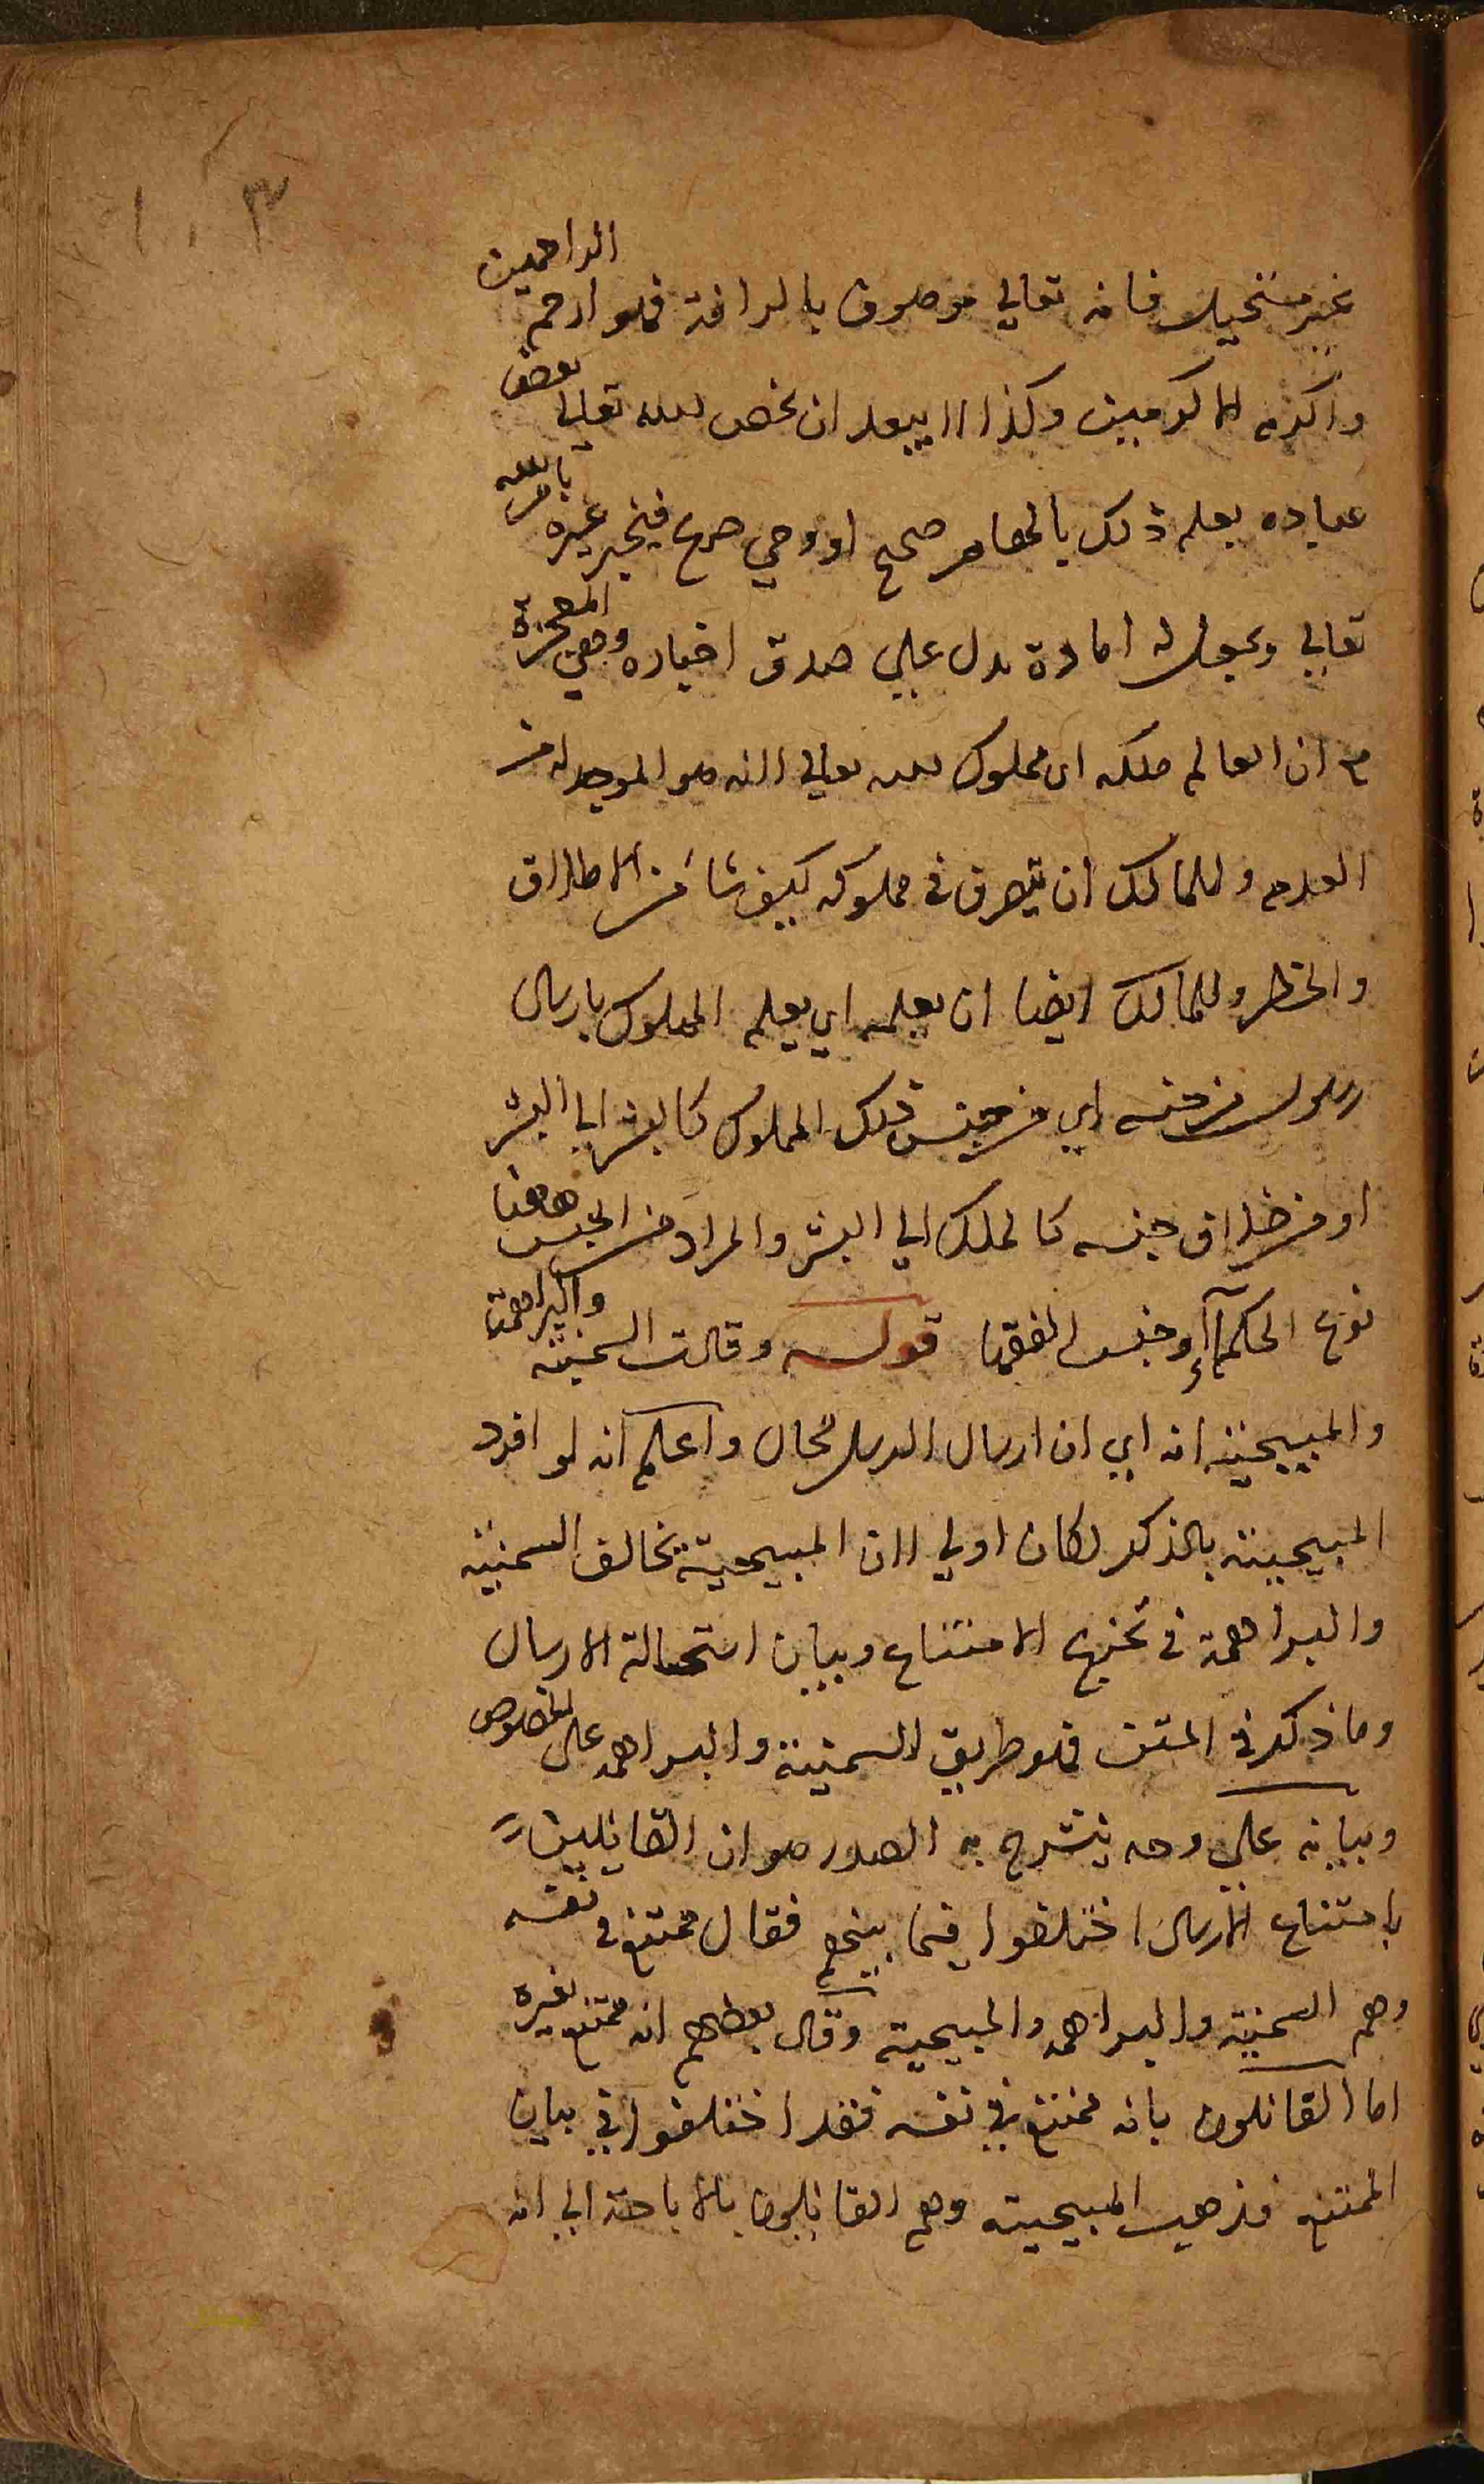 ١٠٣
غير مستحيل فانه تعالي موصوف بالرافة فهو ارحم الراحمين
واكرم الاكرمين وكذا لا يبعد ان يخص الله تعالي بعض
عباده بعلم ذلك بالهام صحيح او وحي صريح فيخبر غيره بامر الله
تعالي ويجعل له امارة تدل علي صدق اخباره وهي المعجزة
ثم ان العالم ملكه اى مملوك لله تعالي لانه هو الموجد له من
العدم وللمالك ان يتصرف في مملوكه كيف شاء من الاطلاق
والحظر وللمالك ايضا ان يعلمه اي يعلم المملوك بارسال
رسول من جنسه اي من جنس ذلك المملوك كالبشر الي البشر
او من خلاف جنسه كالملك الي البشر والمراد من الجنس ههنا
نوع الحكماء وجنس الفقها قوله وقالت السمنية والبراهمة
والمبيحية انه اي ان ارسال الرسل محال واعلم انه لو افرد
المبيحية بالذكر لكان اولي لان المبيحية يخالف السمنية
والبراهمة في تخريج الامتناع وبيان استحالة الارسال
وما ذكر في المتن فهو طريق السمنية والبراهمه على الخصوص
وبيانه علي وجه ينشرح به الصدر هو ان القايلين
بامتناع الارسال اختلفوا فيما بينهم فقال ممتنع في نفسه
وهم السمنية والبراهمه والمبيحية وقال بعضهم انه ممتنع لغيره
اما القائلون بانه ممتنع في نفسه فقد اختلفوا في بيان
الممتنع فذهب المبيحية وهم القائلون بالاباحة الي انه